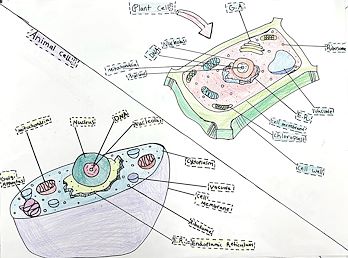 Plant cell
G.A
Nucleus
mitochondria
Ribosome
vacuole
E.R
cell membrane
chloroplast
cell wall
Animal cell
mitochondria
Nucleus
DNA
Nucleolus
Cytoplasm
Vacuole
Cell
membrane
Ribosome
E.R Endoplasmic Reticulum